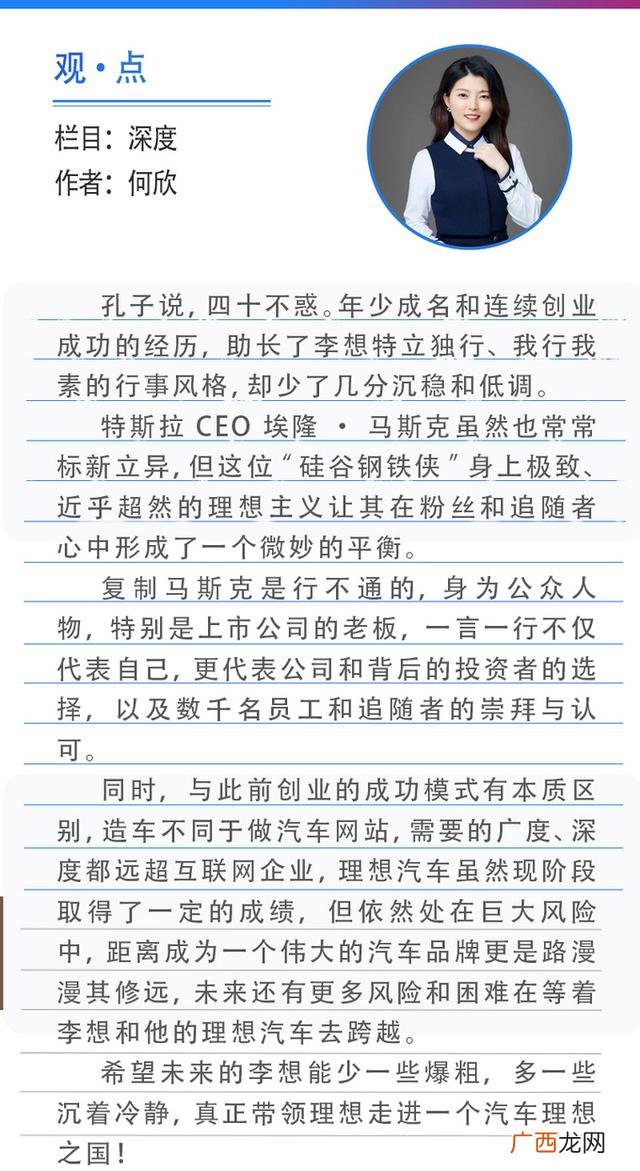 观·点
栏目：深度
作者：何欣
孔子说，四十不惑。年少成名和连续创业
成功的经历，助长了李想特立独行、我行我
素的行事风格，却少了几分沉稳和低调。
特斯拉 CEO 埃隆 · 马斯克虽然也常常
标新立异，但这位“硅谷钢铁侠”身上极致、
近乎超然的理想主义让其在粉丝和追随者
心中形成了一个微妙的平衡。
复制马斯克是行不通的，身为公众人
物，特别是上市公司的老板，一言一行不仅
代表自己，更代表公司和背后的投资者的选
择，以及数千名员工和追随者的崇拜与认
可。
同时，与此前创业的成功模式有本质区
别，造车不同于做汽车网站，需要的广度、深
度都远超互联网企业，理想汽车虽然现阶段
取得了一定的成绩，但依然处在巨大风险
中，距离成为一个伟大的汽车品牌更是路漫
漫其修远，未来还有更多风险和困难在等着
李想和他的理想汽车去跨越。
希望未来的李想能少一些爆粗，多一些
沉着冷静，真正带领理想走进一个汽车理想
之国！
广西龙网